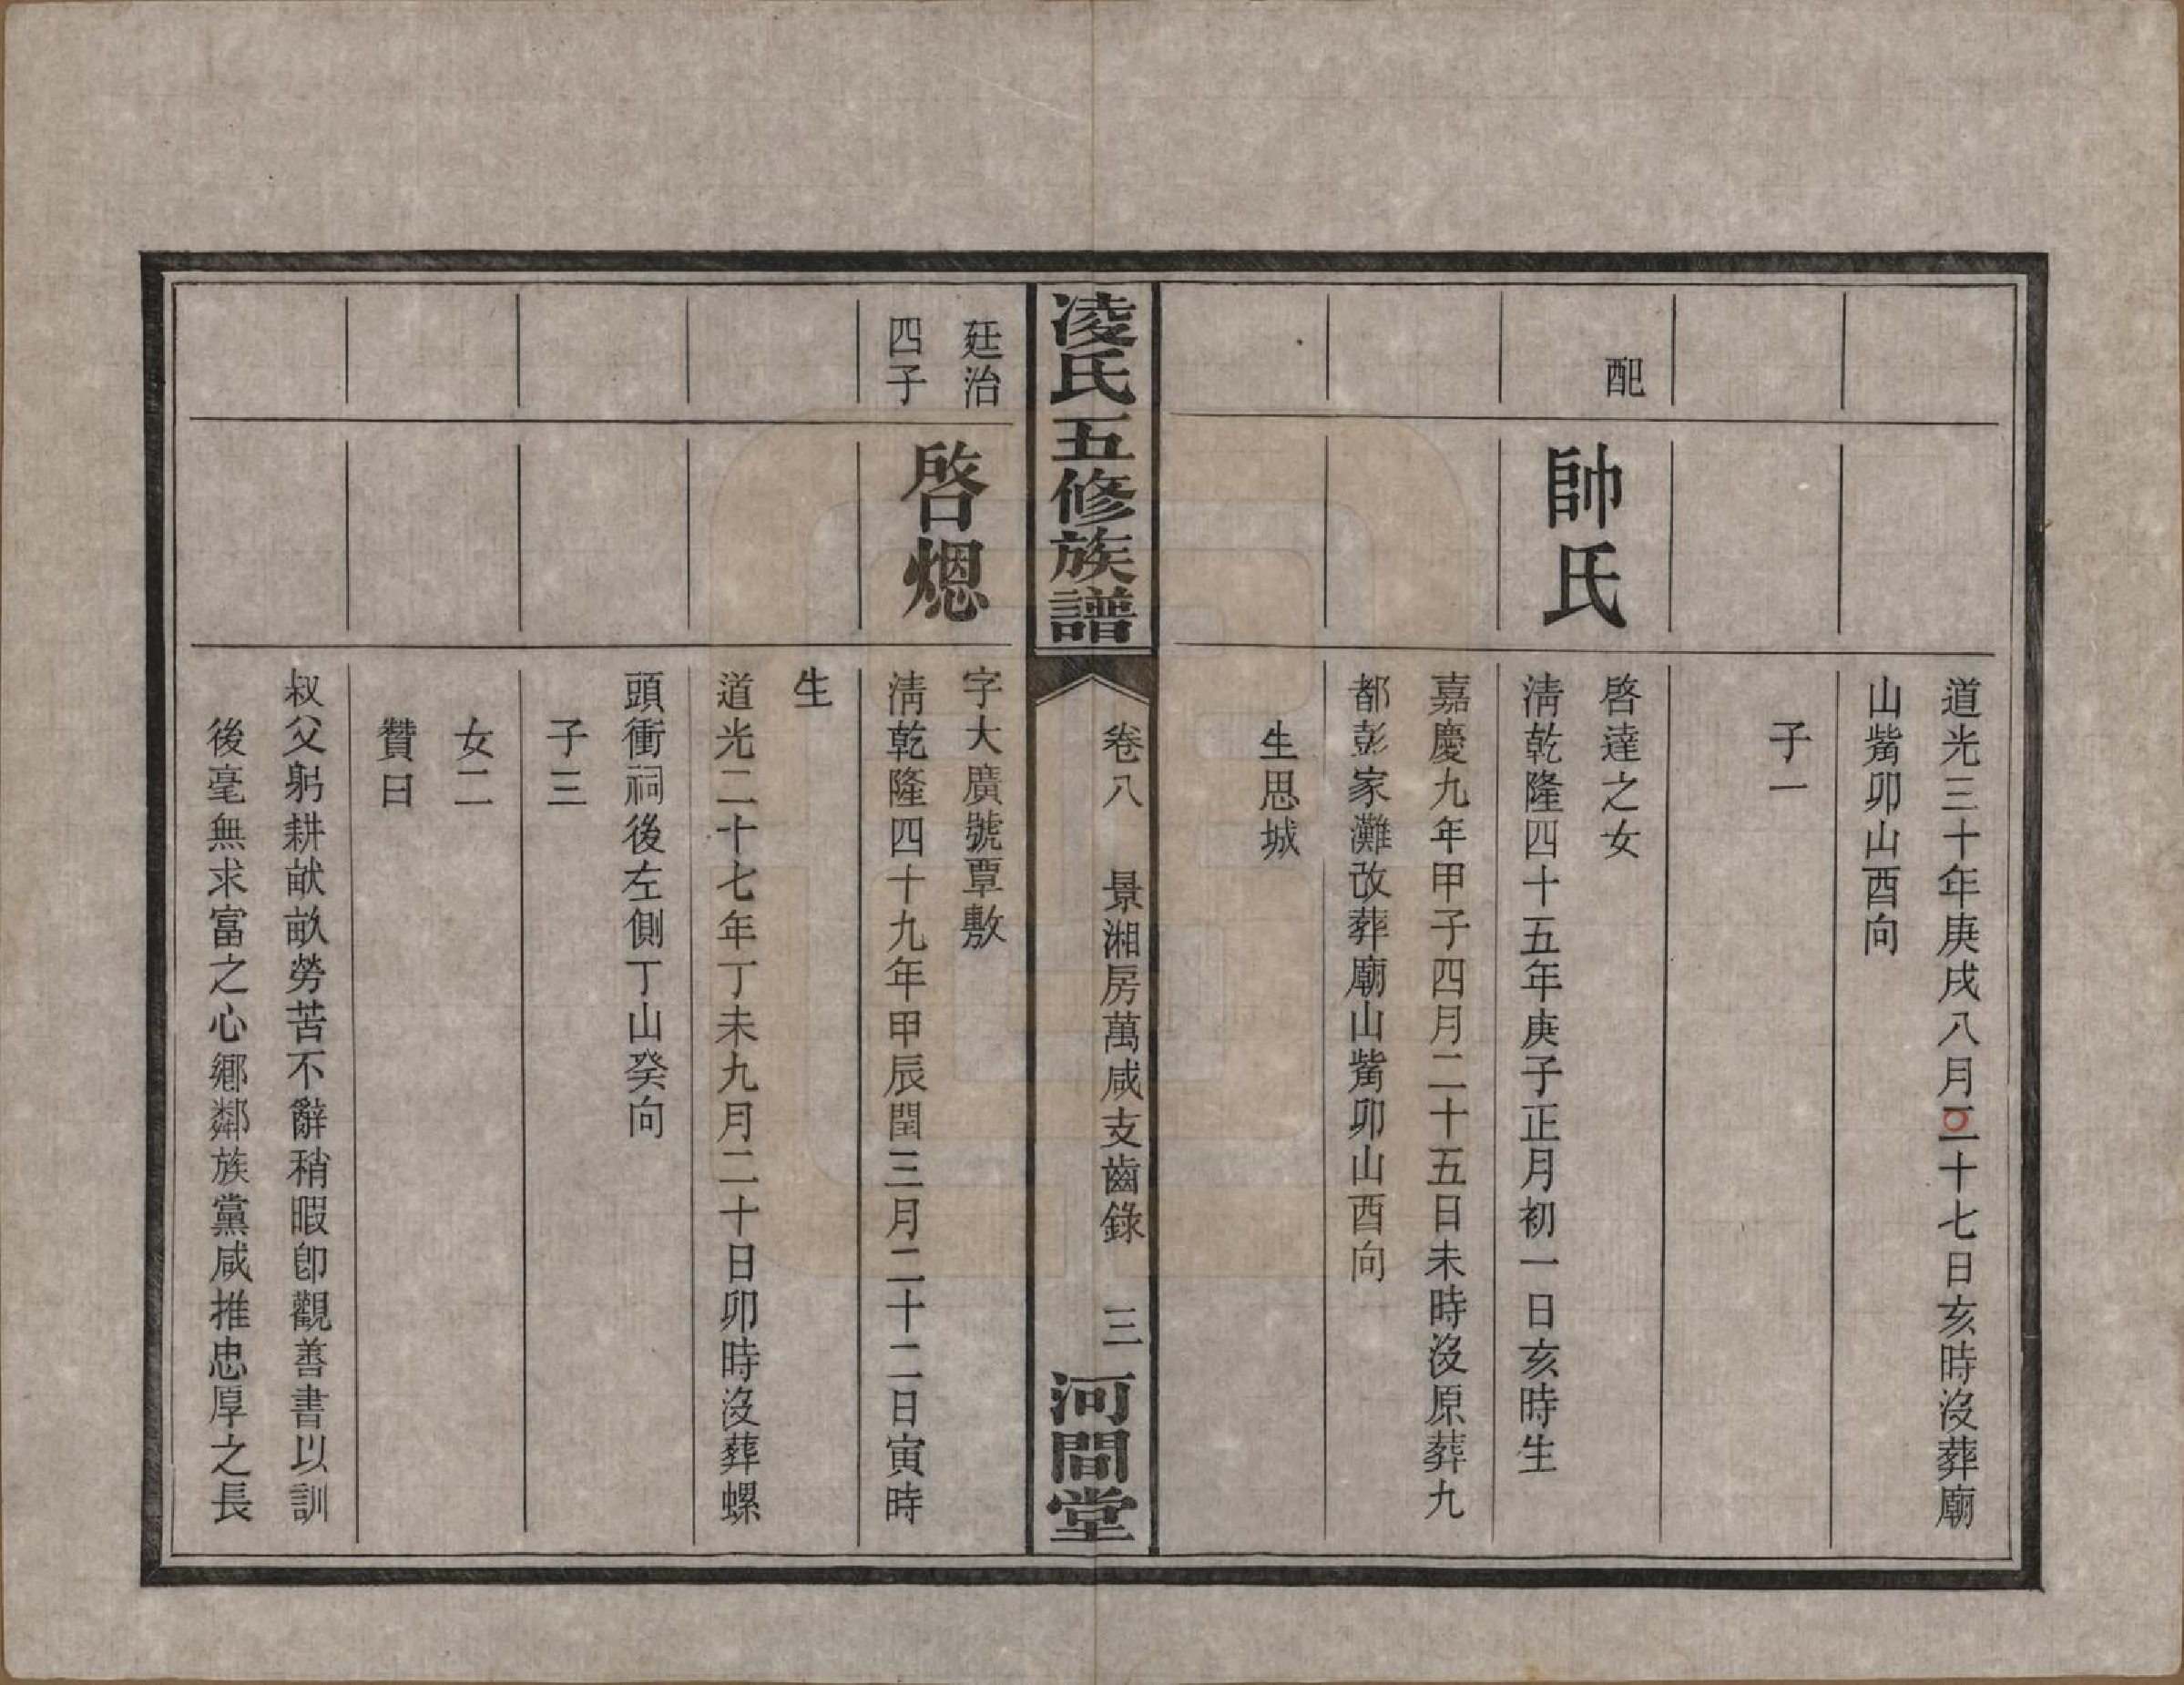 道光三十年庚戌八月二十七日亥時沒葬廟
山觜卯山酉向
子一
配
帥氏
啓達之女
清乾隆四十五年庚子正月初一日亥時生
嘉慶九年甲子四月二十五日未時沒原葬九
都彭家灘改葬廟山觜卯山酉向
生思城
凌氏五修族譜
卷八 景湘房萬咸支齒錄 三
河間堂
廷治
四子
啓煾
字大廣號覃敷
清乾隆四十九年甲辰閏三月二十二日寅時
生
道光二十七年丁未九月二十日卯時沒葬螺
頭衝祠後左側丁山癸向
子三
女二
贊曰
叔父躬耕畎畝勞苦不辭稍暇卽觀善書以訓
後毫無求富之心鄉鄰族黨咸推忠厚之長